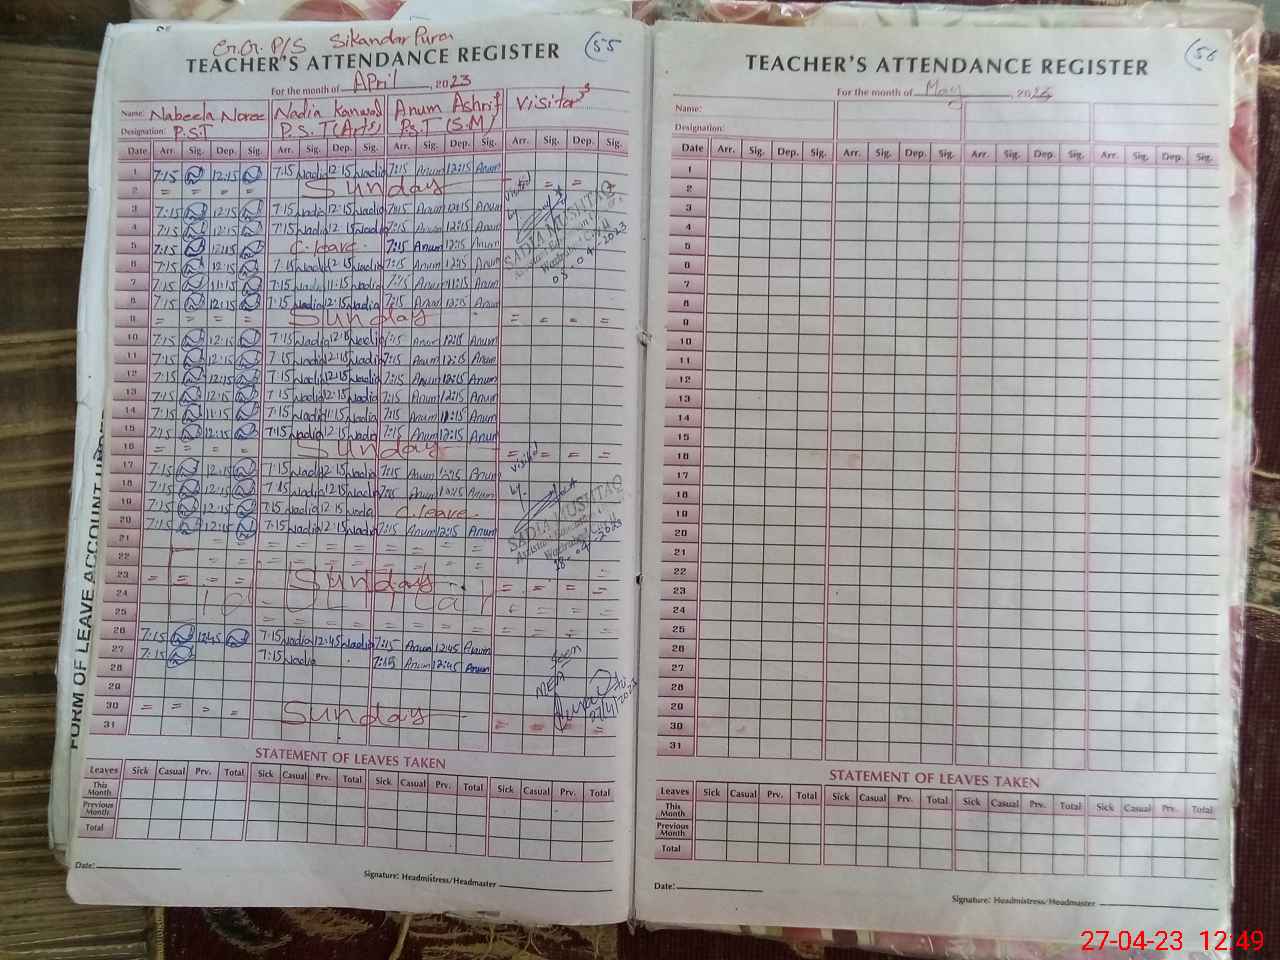 G.G. P/S Sikandar Pura
55
TEACHER'S ATTENDANCE REGISTER
For the month of April, 2023
Name: Nabeela Noree Nadia Kanwal Anum Ashrif Visitors
Designation: P.S.T P.S.T (Arts) P.S.T (S.M)
Date Arr. Sig. Dep. Sig. Arr. Sig. Dep. Sig. Arr. Sig. Dep. Sig. Arr. Sig. Dep. Sig.
1 7:15 12:15 7:15 Nadia 12:15 Nadia 7:15 Anum 12:15 Anum
2 = = = = Sunday = = =
3 7:15 12:15 7:15 Nadia 12:15 Nadia 7:15 Anum 12:15 Anum
4 7:15 12:15 7:15 Nadia 12:15 Nadia 7:15 Anum 12:15 Anum
5 7:15 12:15 C.leave. 7:15 Anum 12:15 Anum
6 7:15 12:15 7:15 Nadia 12:15 Nadia 7:15 Anum 12:15 Anum
7 7:15 11:15 7:15 Nadia 11:15 Nadia 7:15 Anum 11:15 Anum
8 7:15 12:15 7:15 Nadia 12:15 Nadia 7:15 Anum 12:15 Anum
9 = = = = Sunday = = = =
10 7:15 12:15 7:15 Nadia 12:15 Nadia 7:15 Anum 12:15 Anum
11 7:15 12:15 7:15 Nadia 12:15 Nadia 7:15 Anum 12:15 Anum
12 7:15 12:15 7:15 Nadia 12:15 Nadia 7:15 Anum 12:15 Anum
13 7:15 12:15 7:15 Nadia 12:15 Nadia 7:15 Anum 12:15 Anum
14 7:15 11:15 7:15 Nadia 11:15 Nadia 7:15 Anum 11:15 Anum
15 7:15 12:15 7:15 Nadia 12:15 Nadia 7:15 Anum 12:15 Anum
16 = = = = Sunday = = = =
17 7:15 12:15 7:15 Nadia 12:15 Nadia 7:15 Anum 12:15 Anum
18 7:15 12:15 7:15 Nadia 12:15 Nadia 7:15 Anum 12:15 Anum
19 7:15 12:15 7:15 Nadia 12:15 Nadia C.leave.
20 7:15 12:15 7:15 Nadia 12:15 Nadia 7:15 Anum 12:15 Anum
21
22
23 = = = = Sunday = = = =
24
25
26 7:15 12:45 7:15 Nadia 12:45 Nadia 7:15 Anum 12:45 Anum
27 7:15 7:15 Nadia 7:15 Anum 12:45 Anum
28
29
30 = = = = Sunday = = = =
31
visited by
SADIA MUSHTAQ
05-04-2023
visited by
SADIA MUSHTAQ
18-04-2023
Seen
MEA
27/4/2023
STATEMENT OF LEAVES TAKEN
Leaves Sick Casual Prv. Total Sick Casual Prv. Total Sick Casual Prv. Total Sick Casual Prv. Total
This Month
Previous Month
Total
Date:
Signature: Headmistress/Headmaster
FORM OF LEAVE ACCOUNT UNDER
56
TEACHER'S ATTENDANCE REGISTER
For the month of May, 202
Name:
Designation:
Date Arr. Sig. Dep. Sig. Arr. Sig. Dep. Sig. Arr. Sig. Dep. Sig. Arr. Sig. Dep. Sig.
1
2
3
4
5
6
7
8
9
10
11
12
13
14
15
16
17
18
19
20
21
22
23
24
25
26
27
28
29
30
31
STATEMENT OF LEAVES TAKEN
Leaves Sick Casual Prv. Total Sick Casual Prv. Total Sick Casual Prv. Total Sick Casual Prv. Total
This Month
Previous Month
Total
Date:
Signature: Headmistress/Headmaster
27-04-23 12:49